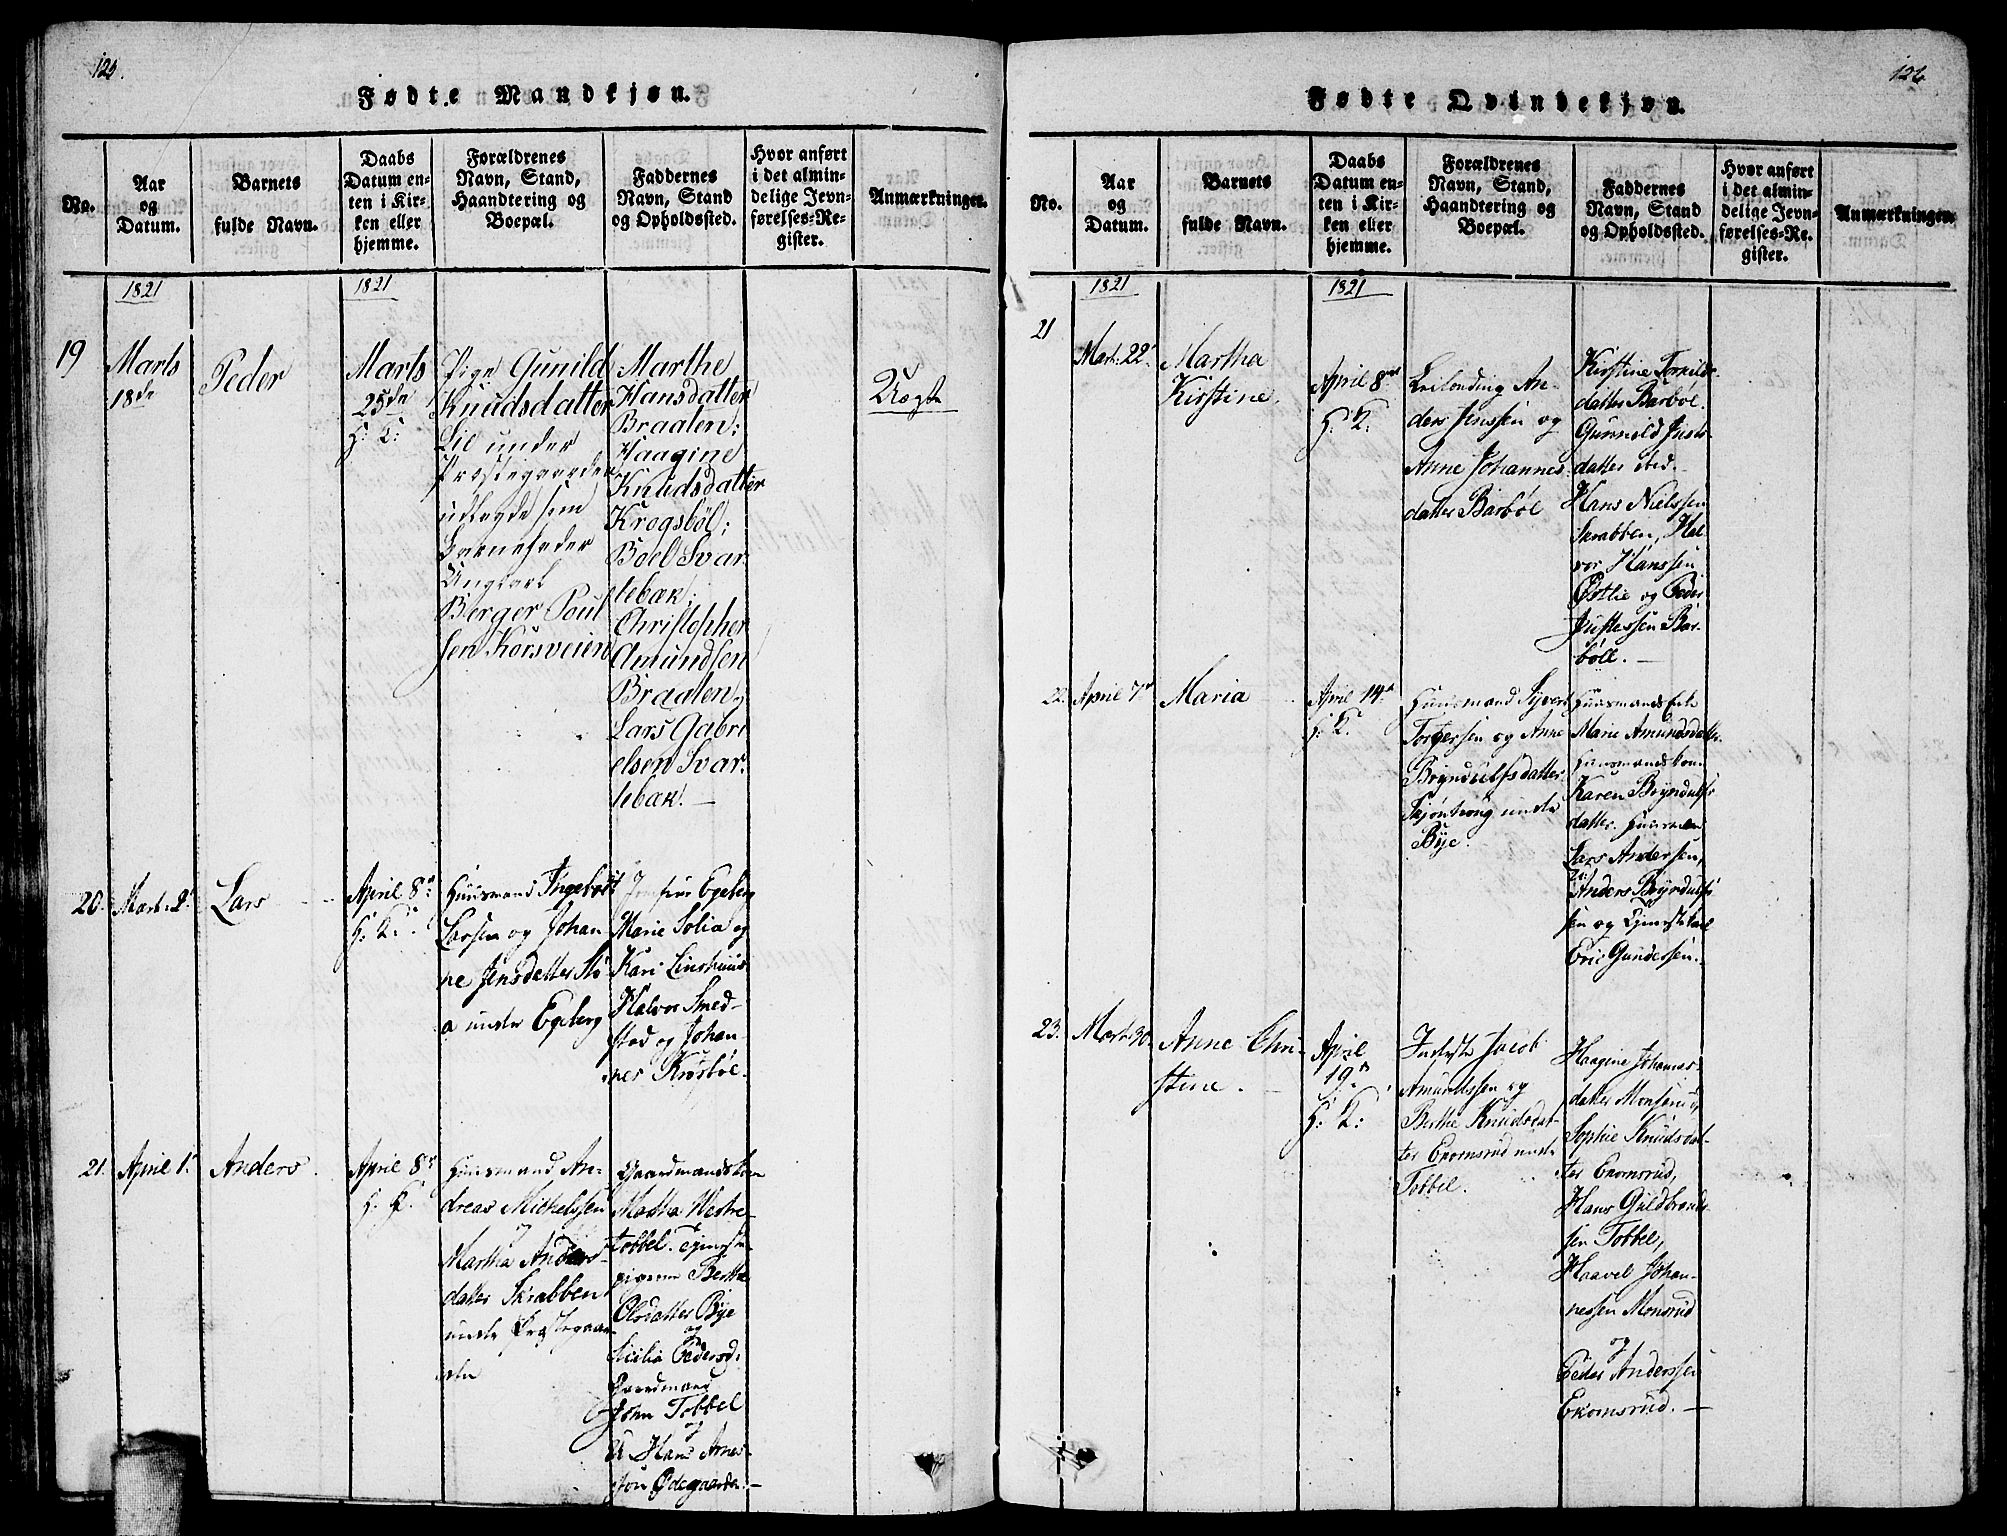 125.
Fødte Mandkjøn.
No.
Aar
og
Datum.
Barnets
fulde Navn.
Daabs
Datum en-
ten i Kir-
ken eller
hjemme.
Forældrenes
Navn, Stand,
Haandtering og
Boepæl.
Faddernes
Navn, Stand
og Opholdssted.
Hvor anført
i det almin-
delige Jevn-
førelses-Re-
gister.
Anmærkninger.
1821
1821
19
Marts
18de
Peder
Marts
25de
H: K:
Pige Gunild
Knudsdatter
Lie under
Præstegaarden
udlagde som
Barnefader
Ungkarl
Berger Poul
sen Korsveien
Marthe
Hansdatter
Braaten;
Haagine
Knudsdatter
Krogsböl;
Boel Svar-
tebæk;
Christopher
Amundsen
Braaten,
Lars Gabri
elsen Svar-
tebæk! —
Uægte
20.
Mart: 2
Lars
April 8de
H: K:
Huusmand Ingebret
Larsen og Johan
ne Jensdatter Stö
a under Egeberg
Jomfrue Egeberg
Marie Solia og
Kari Linshuus
Halvor Smed-
stad og Johan-
nes Krosböe.
21.
April 1.
Anders.
April 8de
H: K.
Huusmand An-
dreas Michelssen
og
Martha Anders-
datter Skrabben
under Præstegaar-
den
Gaardmandskone
Martha Westre
Tobbel. Tjeneste-
pigerne Berthe
Olsdatter Bye
og
Cicilia Pedersd:
Gaardmand
John Tobbel
og
Hans Arnes-
son Ödegaarden. —
126
Fødte Qvindekjøn.
No.
Aar
og
Datum.
Barnets
fulde Navn.
Daabs
Datum en-
ten i Kir-
ken eller
hjemme.
Forældrenes
Navn, Stand,
Haandtering og
Boepæl.
Faddernes
Navn, Stand
og Opholdssted.
Hvor anført
i det almin-
delige Jevn-
førelses-Re-
gister.
Anmærkninger.
1821
1821
21
Mart: 22
Martha
Kirstine.
April 8de
H: K.
Leilending An-
ders Jenssen og
Anne Johannes-
datter Barböl
Kirstine Torkilds-
datter Barböl.
Gunnild Justs-
datter ibid.—
Hans Nielssen
Skrabben, Hal-
vor Hanssen
Østlie og Peder
Justessen Bar-
böll. —
22.
April 7
Maria
April 14
H: K.
Huusmand Syvert
Torgersen og Anne
Bryndulfsdatter
under
Bye.
Huusmands Enke
Marie Amundsdatter.
Huusmandskone
Karen Bryndulfs
datter. Huusmand
Lars Andersen,
Anders Bryndulfs
sen og Tjenestekarl
Eric Gundersen.
23.
Mart: 30.
Anne Chri-
stine.
April
19de
H: K:
Inderste Jacob
Amundssen og
Berthe Knudsdat-
ter Ekornsrud under
Tobbel.
Haagine Johannes-
datter Monserud,
Sophie Knudsdat-
ter Ekornsrud,
Hans Guldbrand-
sen Tobbel,
Haavel Johan-
nessen Monsrud
og
Peder Anderssen
Ekornsrud. —